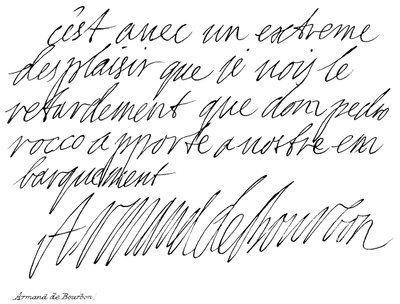 c'est avec un extreme
desplaisir que je voij le
retardement que dom pedro
rocco apporte a nostre em
barquement
Armand de bourbon
Armand de Bourbon.